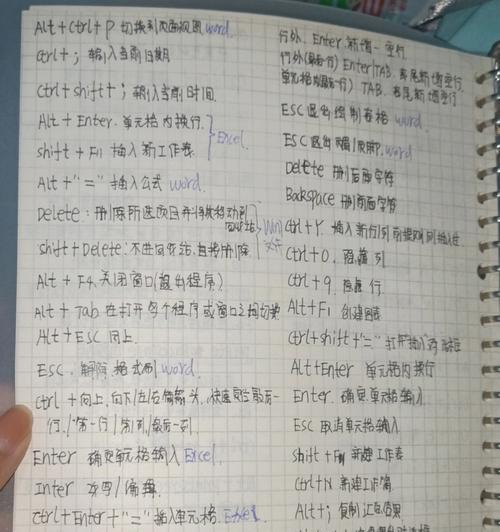 Alt+Ctrl+P 切换到页面视图 word.
ctrl+; 输入当前日期
Ctrl+shift+; 输入当前时间.
Alt+Enter. 单元格内换行.
shift+F11 插入新工作表 Excel
Alt+"=" 插入公式 word.
Delete: 删除所选项目并将其移动到回收站 Win文件
shift+Delete: 不进回收站,直接删除
Alt+F4.关闭窗口(退出程序)
Alt+Tab 在打开每个程序或窗口之间切换
Alt+ESC 同上
ESC. 解除格式刷 word.
Ctrl+向上,向下/左/右箭头,快速定位最后一
行/第一行/第一列/最后一列.
Enter 确定单元格输入 Excel.
Inter 改写/编辑
Ctrl+Enter+"=" 插入单元格. Excel
行外, Enter. 新增一空行
行外(最后一行) Enter/TAB. 表尾新增空行
单元格内(最后一行) TAB. 表尾新增空行
ESC 退出绘制表格 word
ESC 退出页眉/页脚. word
Delete 删后面字符
Backspace 删前面字符
Ctrl+Y. 插入新行/列
Ctrl+0. 隐藏列
Ctrl+9. 隐藏行
Alt+F1 创建图表
Ctrl+shift+"=" 打开插入对话框
Alt+Enter 单元格内换行
Enter. 确定单元格输入
ESC 取消单元格输入
shift+F11 新建工作表
Ctrl+N 新建工作簿
Alt+; 复制汇总结果